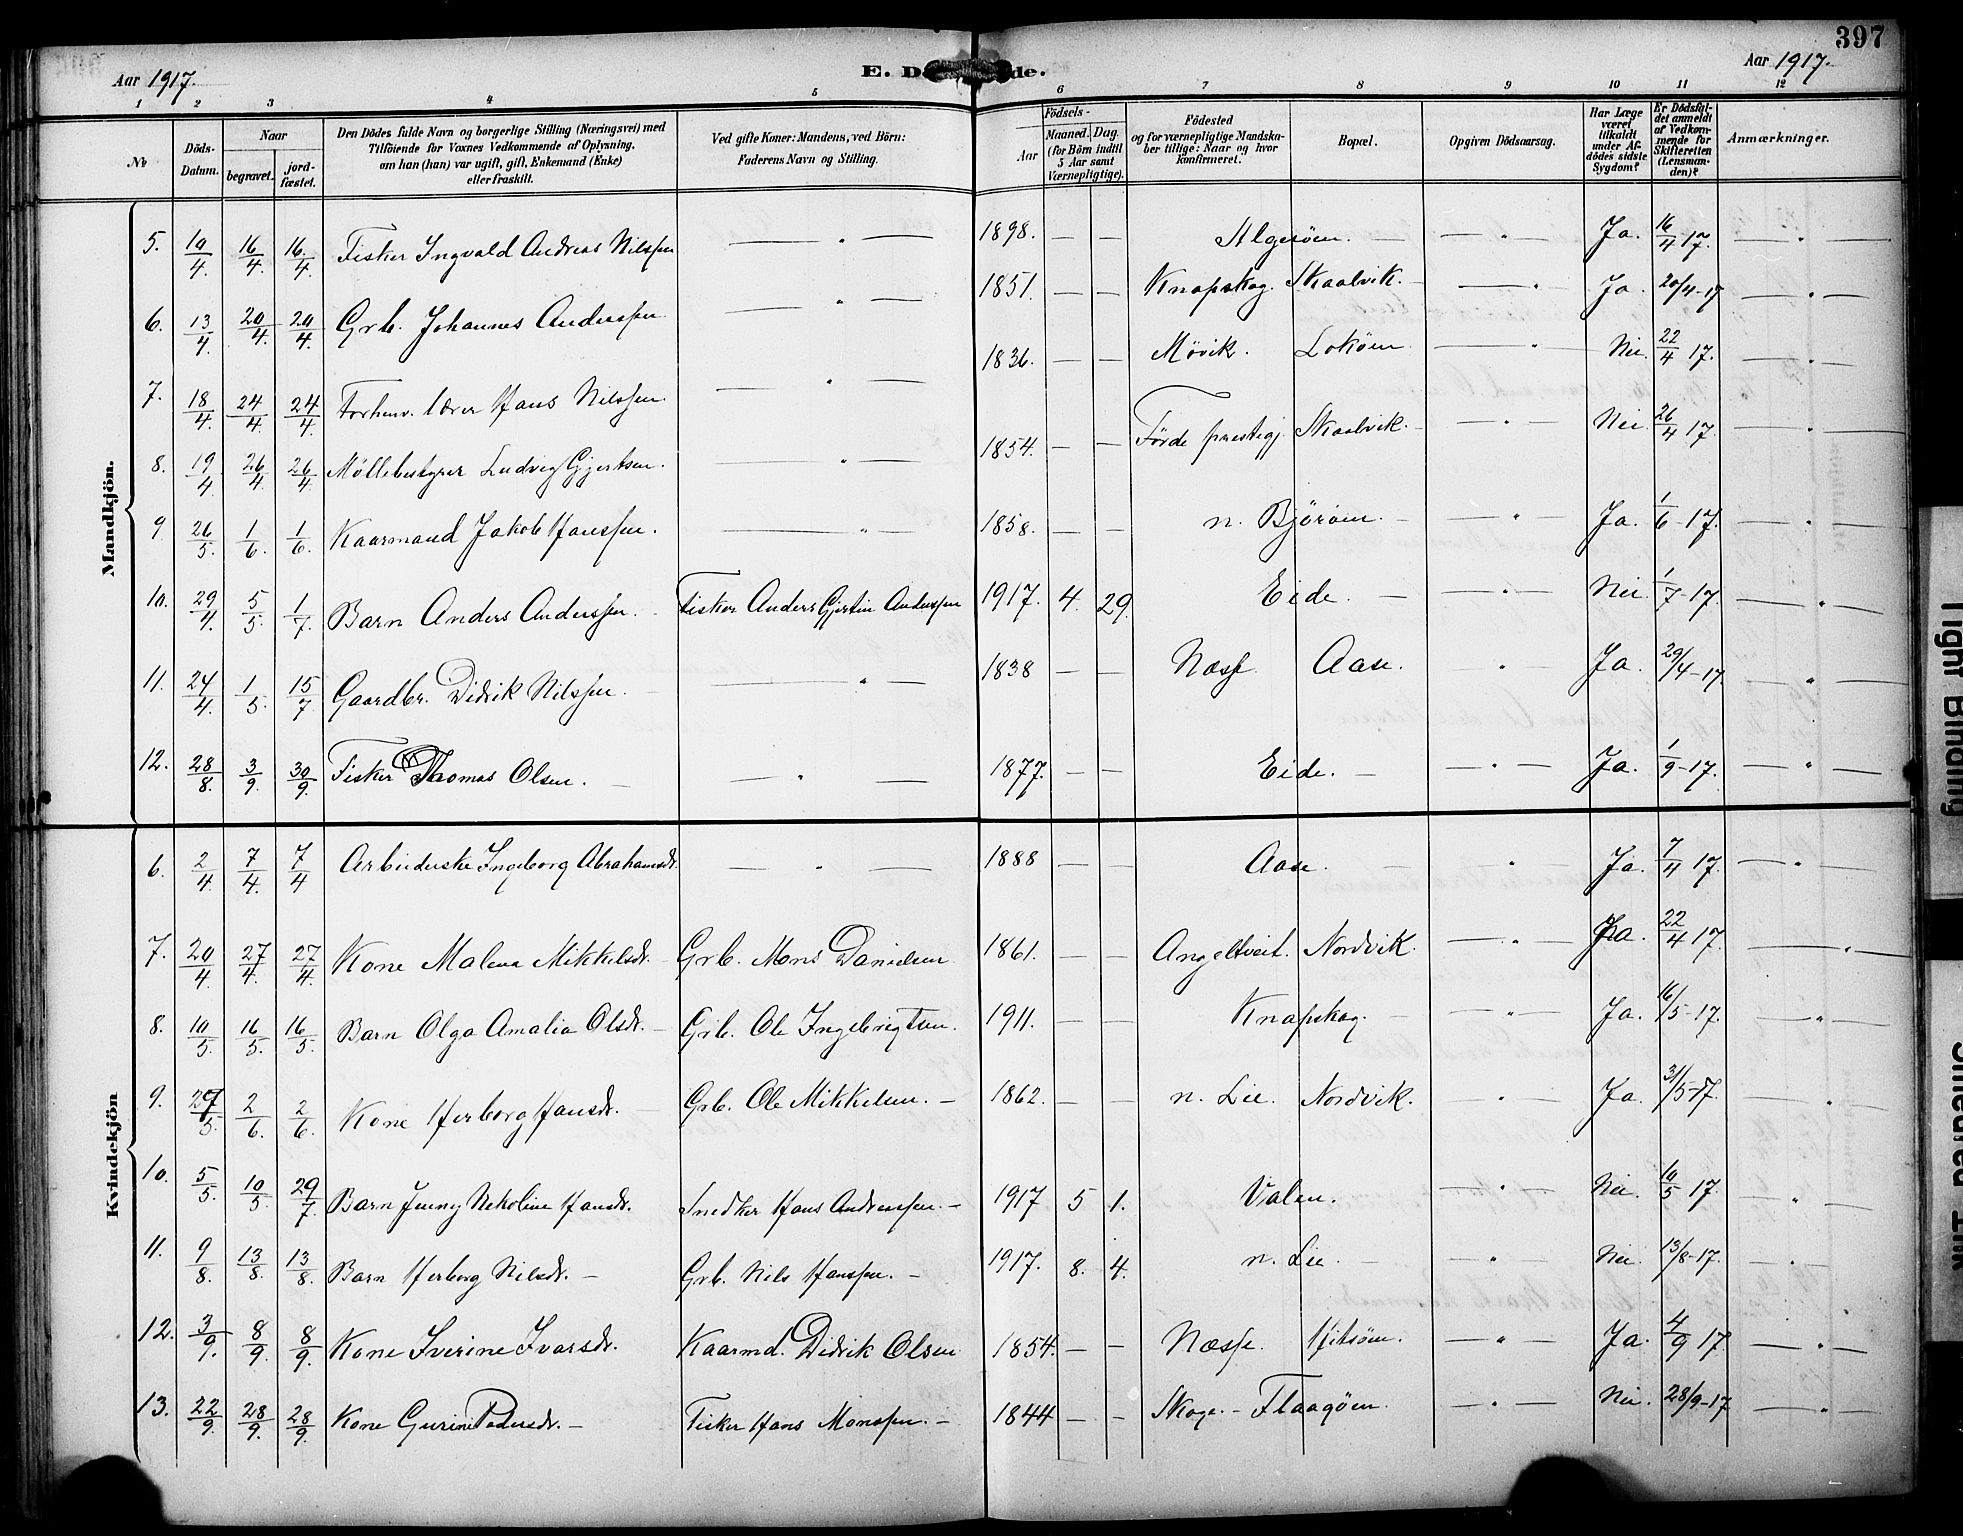 397
Aar 1917. E. D de. Aar 1917.
1 2 3 4 5 6 7 8 9 10 11 12
№ Döds-Datum. Naar begravet. jordfæstet. Den Dödes fulde Navn og borgerlige Stilling (Næringsvei) med Tilföiende for Voxnes Vedkommende af Oplysning, om han (hun) var ugift, gift, Enkemand (Enke) eller fraskilt. Ved gifte Koner: Mandens, ved Börn: Faderens Navn og Stilling. Födsels- Aar Maaned. Dag. (for Börn indtil 5 Aar samt Værnepligtige). Födested og for værnepligtige Mandskaber tillige: Naar og hvor konfirmeret. Bopæl. Opgiven Dödsaarsag. Har Læge været tilkaldt under Afdödes sidste Sygdom? Er Dödsfaldet anmeldt af Vedkommende for Skifteretten (Lensmanden)? Anmærkninger.
Mandkjön.
5. 10/4. 16/4. 16/4. Fisker Ingvald Andreas Nilssen — " — 1898. — — Algeröen. — — " — Ja. 16/4 17. — " —
6. 13/4 20/4. 20/4. Grb. Johannes Anderssen. — " — 1851. — — Knapskog. Skaalvik. — — " Ja. 20/4-17 — " —
7. 18/4. 24/4. 24/4. Forhenv. lærer Hans Nilssen. — " — 1836. — — Mövik. Loköen. — " — Nei. 22/4 17. — " —
8. 19/4 26/4. 26/4. Möllebestyrer Ludvig Gjertsen. — " — 1854. — — Förde præstegj. Skaalvik. — — " — Nei. 26/4 17. — " —
9. 26/5. 1/6. 1/6. Kaarmand Jakob Hanssen. — " — 1858. — — n. Björöen. — — " — Ja. 1/6-17. — " —
10. 29/4. 5/5. 1/7. Barn Anders Anderssen. — Fisker Anders Gjertin Anderssen 1917. 4. 29. Eide. — — " — Nei. 1/7-17. — " —
11. 24/4. 1/5 15/7 Gaardbr. Didrik Nilssen. — — " — 1838 — — Næss. Aase. — " — Ja. 29/4-17 — " —
12. 28/8. 3/9. 30/9. Fisker Thomas Olsen. — — " — 1877. — — Eide. — — " — Ja. 1/9-17. — " —
Kvindekjön
6. 2/4. 7/4. 7/4 Arbeiderske Ingeborg Abrahamsdr. — " — 1888 — — Aase. — " — Ja. 7/4 17. — " —
7. 20/4 27/4. 27/4. Kone Malena Mikkelsdr. — Grb. Mons Danielsen 1861. — — Angeltveit. Nordvik. — " — Ja. 22/4 17. — " —
8. 10/5. 16/5. 16/5. Barn Olga Amalia Olsdr. — Grb. Ole Ingebrigtsen. 1911. — — Knapskog. — — " — Ja. 16/5-17. — " —
9. 27/5. 2/6. 2/6. Kone Herborg Hansdr. — Grb. Ole Mikkelsen. — 1862. — — n. Lie. Nordvik. — " — Ja. 31/5-17. — " —
10. 5/5. 10/5. 29/7. Barn Jenny Nekoline Hansdr. Snedker Hans Andreassen. — 1917 5 1. Valen. — " — Nei. 10/5 17. — " —
11. 9/8. 13/8. 13/8. Barn Herborg Nilsdr. — Grb. Nils Hanssen. — 1917. 8. 4. n. Lie. — — " — Nei. 13/8-17. — " —
12. 3/9. 8/9. 8/9. Kone Iverine Ivarsdr. Kaarmd. Didrik Olsen 1854. — — Næsse. Hitsöen. — " — Ja 4/9 17. — " —
13. 22/9. 28/9. 28/9. Kone Gurine Pedersdr. — Fisker Hans Monssen. — 1844 — — Skoge. — Flaagöen. — " — Nei. 28/9-17 — " —
Tight Binding
Smeared Ink